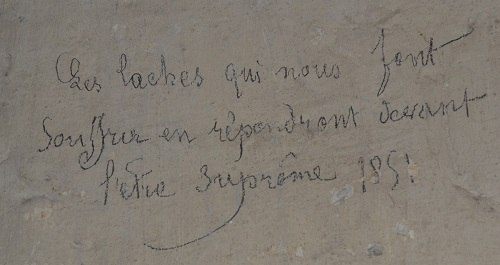 Les laches qui nous font
souffrir en répondront devant
l'etre Suprême 1851